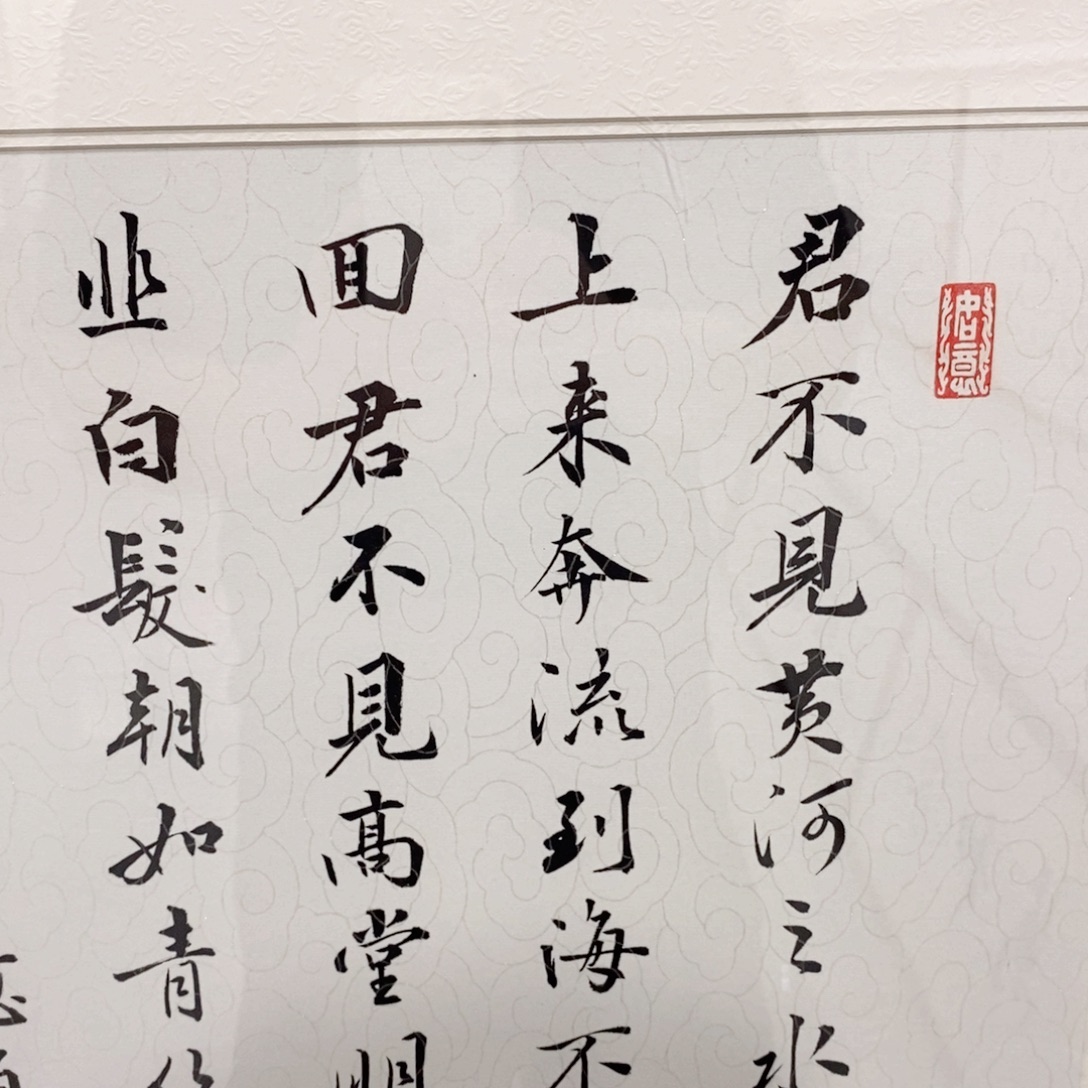 君不見黄河之水
上来奔流到海不
回君不見髙堂明
悲白髮朝如青